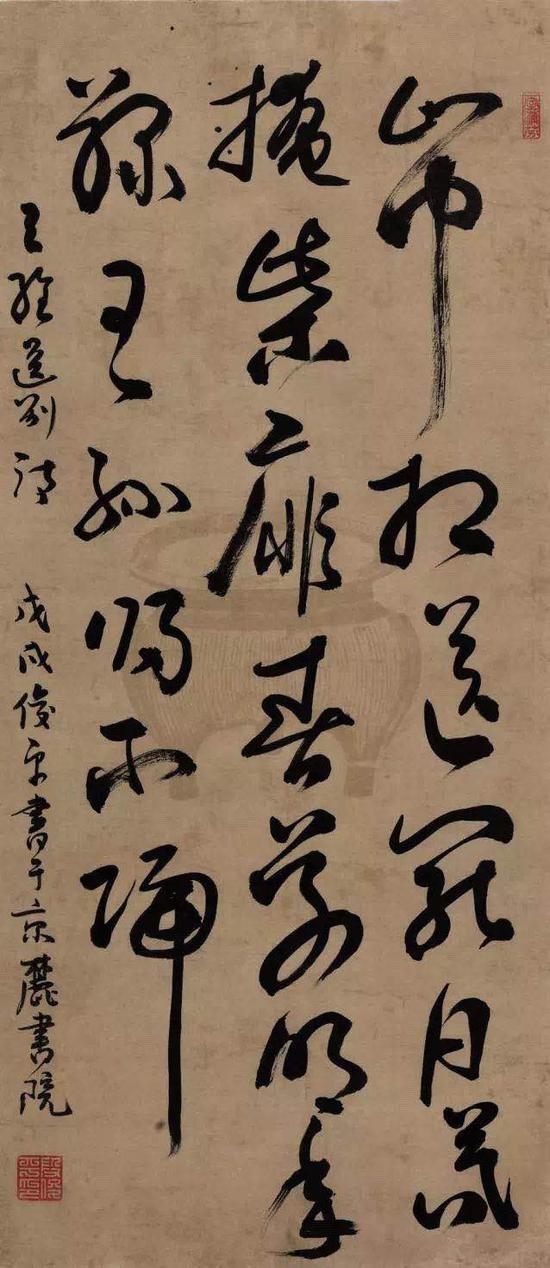 山中相送罷日暮
掩柴扉春草明年
綠王孫歸不歸
王維送別詩 戊戌俊平書于京麓書院